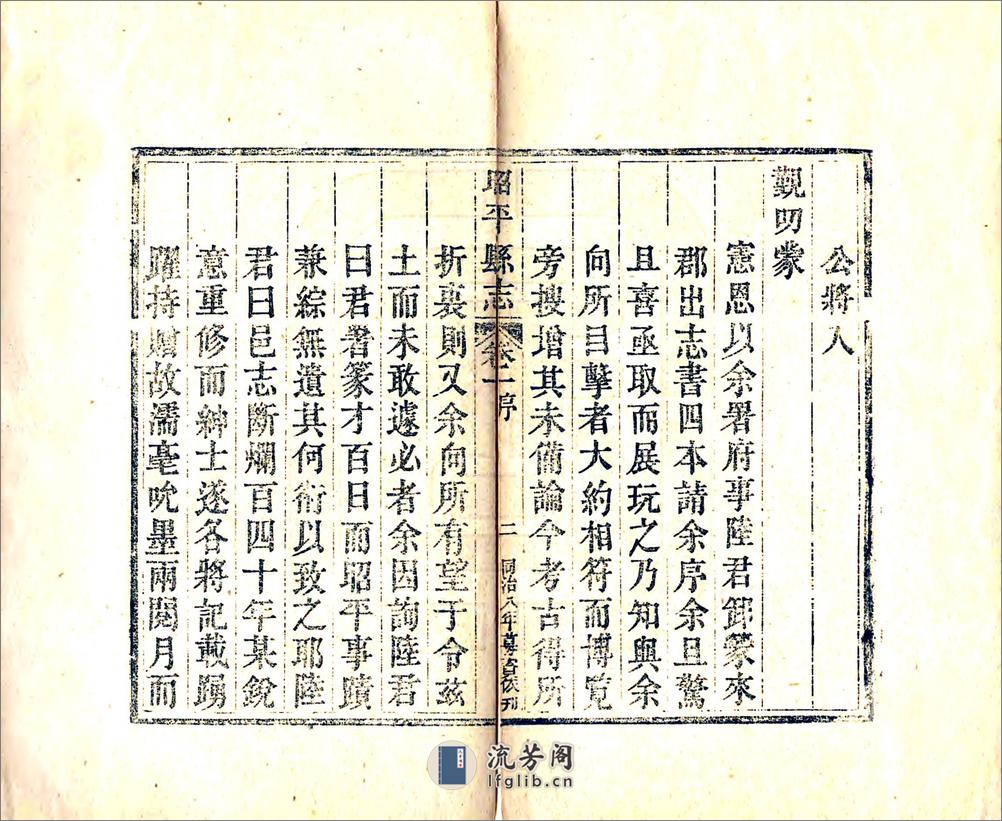 公將入
覲叨蒙
憲恩以余署府事陸君卸篆來
郡出志書四本請余序余且驚
且喜亟取而展玩之乃知與余
向所目擊者大約相符而博覧
旁搜增其未備論今考古得所
昭平縣志 卷一序 二 同治八年募資依刊
折衷則又余向所有望于令兹
土而未敢遽必者余因詢陸君
曰君署篆才百日而昭平事蹟
兼綜無遺其何術以致之耶陸
君曰邑志斷爛百四十年某銳
意重修而紳士遂各將記載踴
躍持贈故濡毫吮墨兩閱月而
流芳阁
lfglib.cn